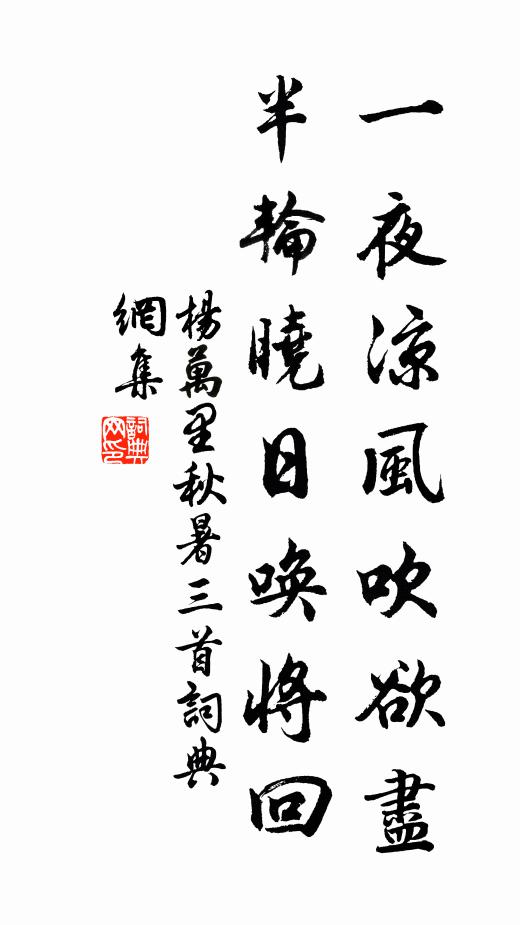 一夜涼風吹欲盡
半輪曉日喚將回
楊萬里秋暑三首詞典
網集
詞典
网印